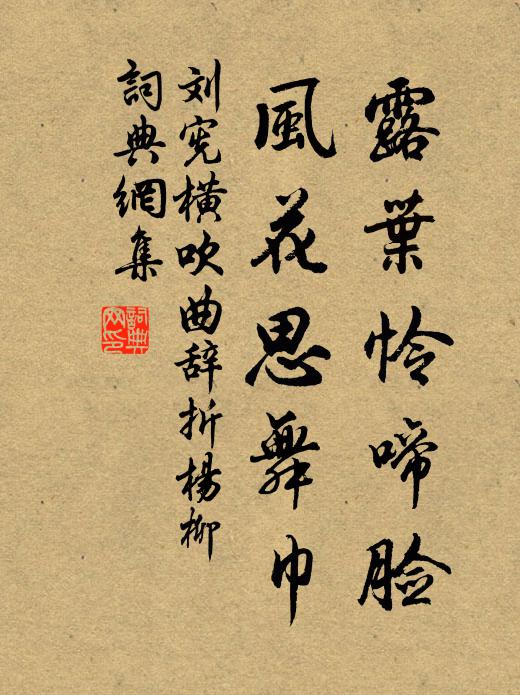 露葉怜啼臉
風花思舞巾
刘宪横吹曲辞折楊柳
詞典網集
詞典网印